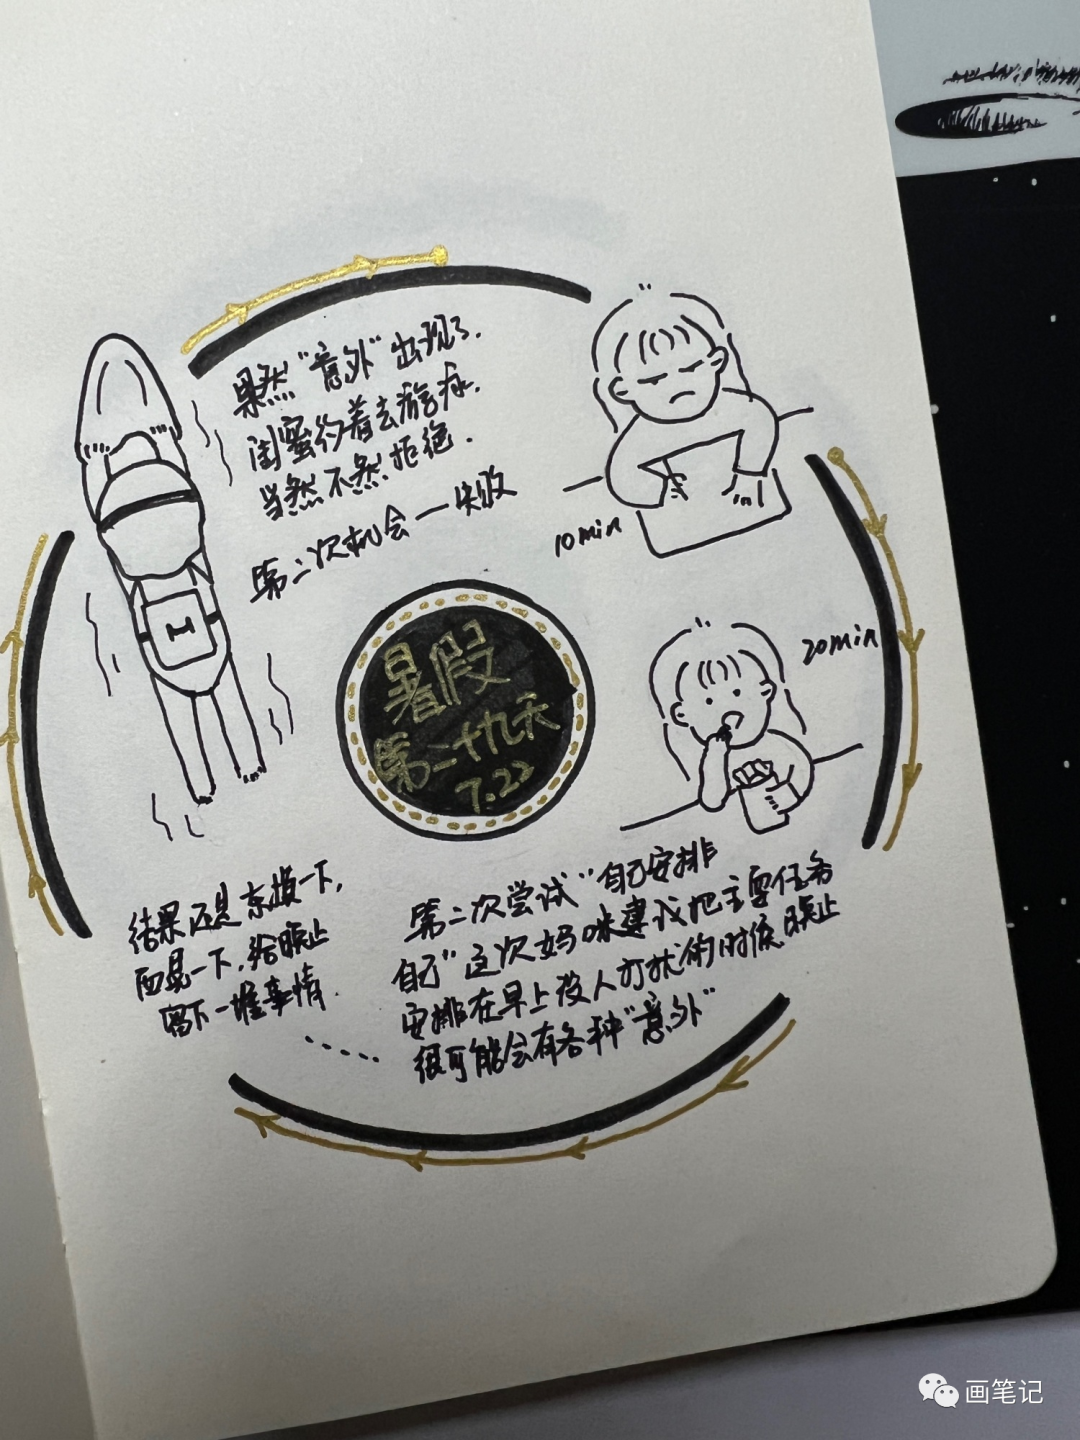 暑假
第二十九天
7.22
第二次尝试“自己安排
自己”这次妈咪建议把主要任务
安排在早上没人打扰的时候.晚上
很可能会有各种“意外”
10min
20min
结果还是东摸一下,
西晃一下,给晚上
留下一堆事情
......
果然“意外”出现了.
闺蜜约着去游泳.
当然不然拒绝.
第二次机会一失败
画笔记